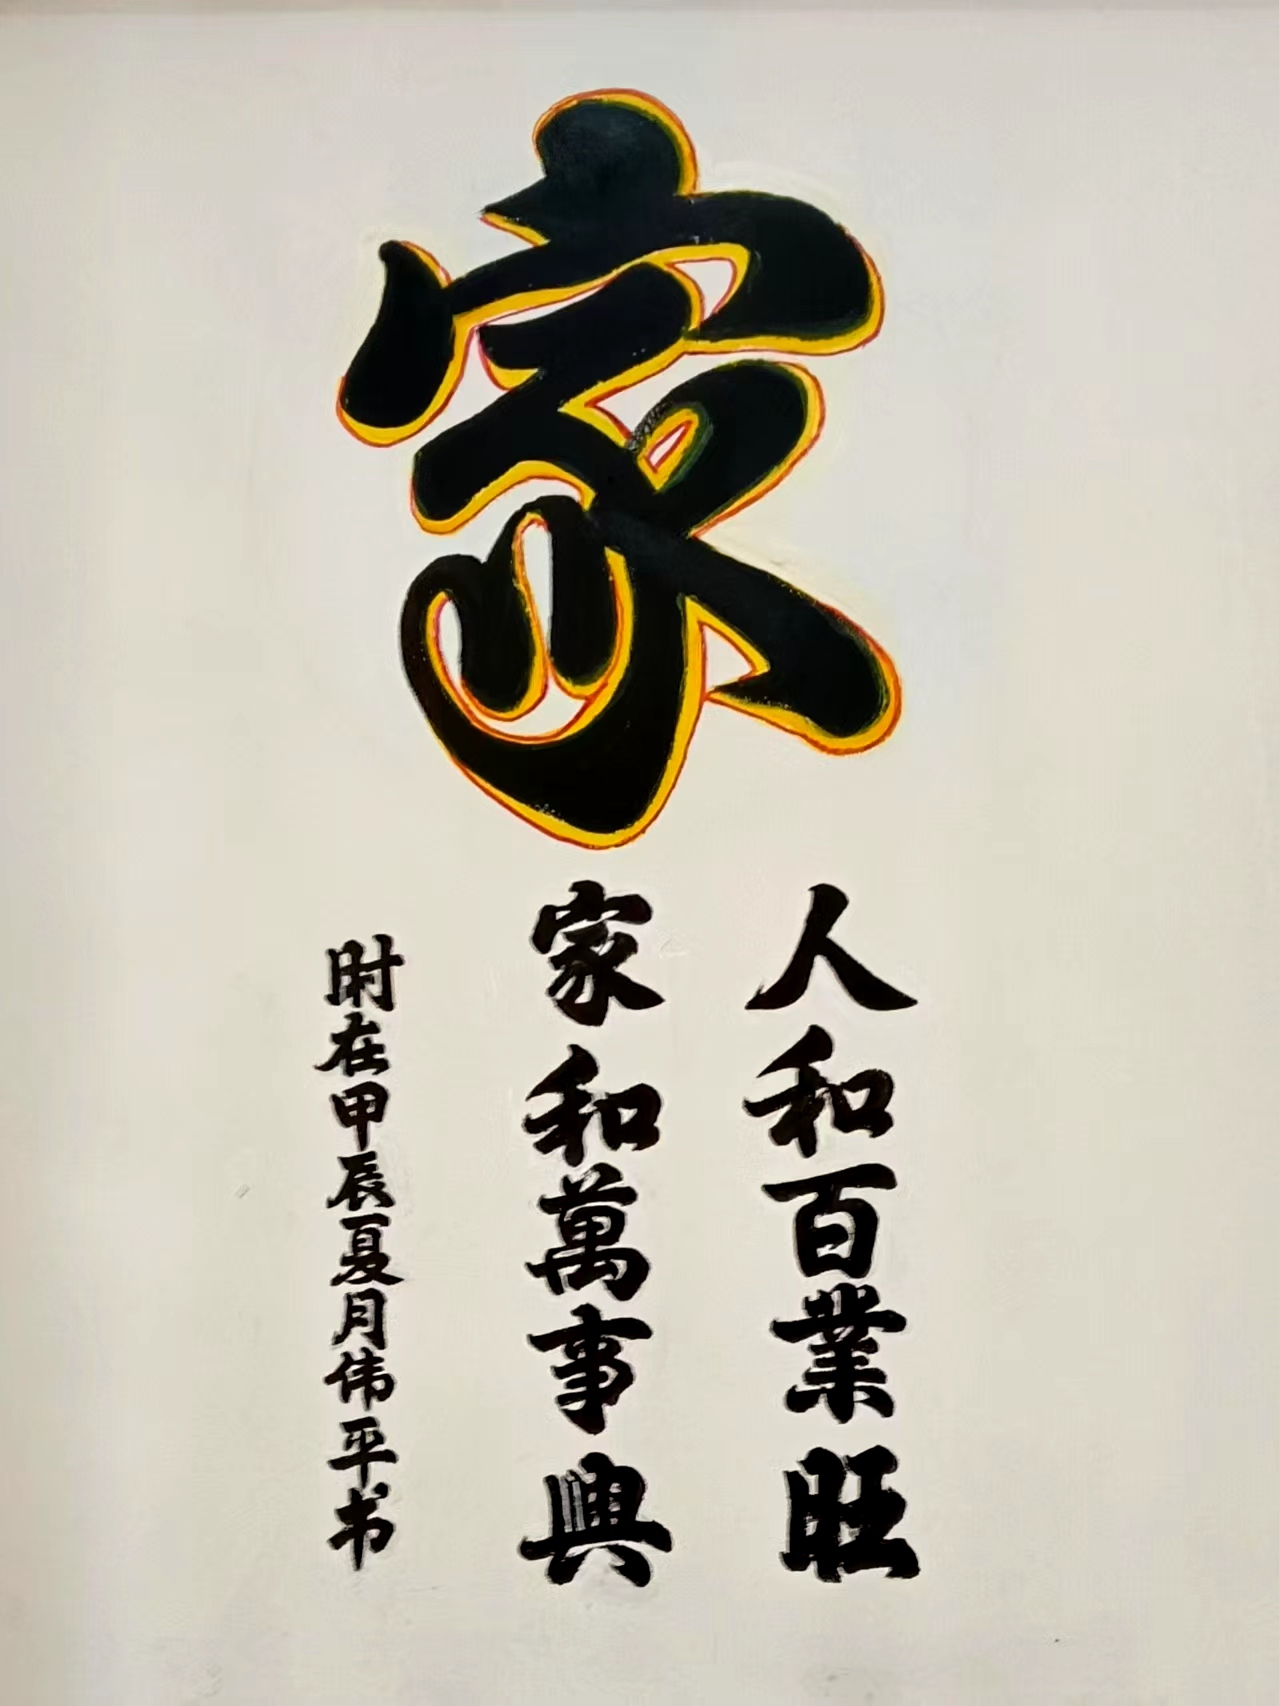 家
人和百業旺
家和萬事興
时在甲辰夏月伟平书